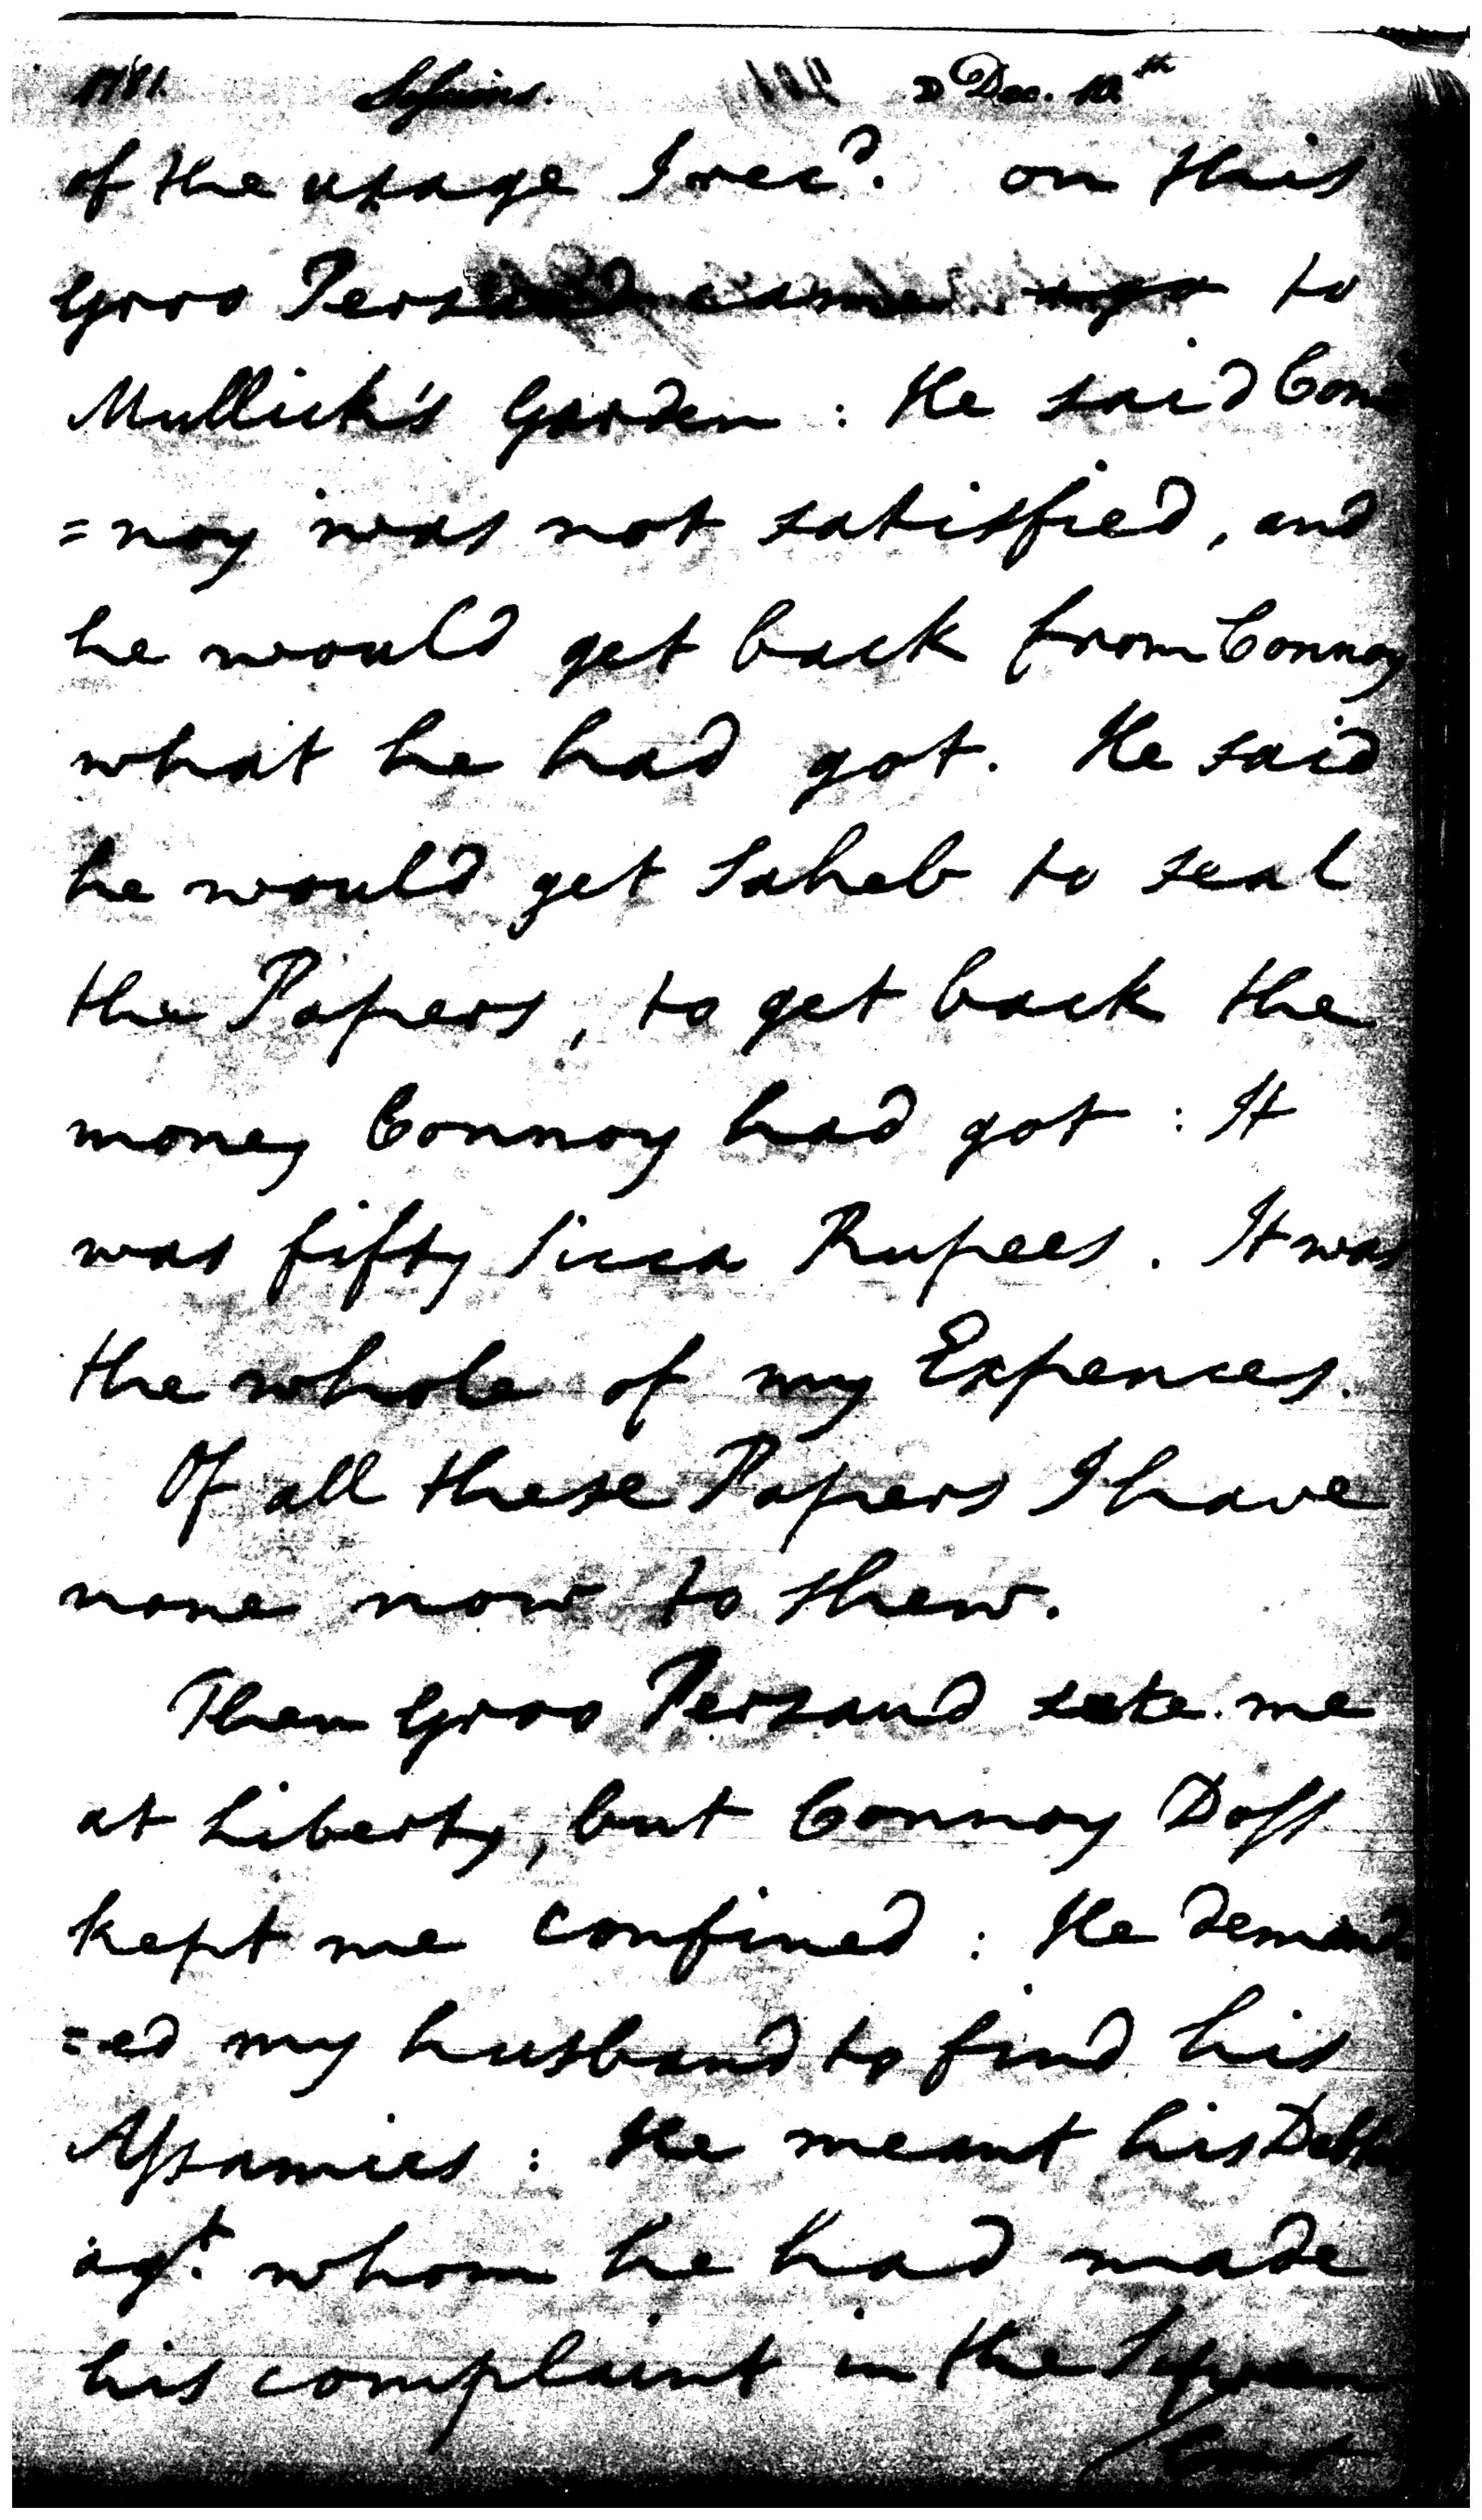 1781. Sessions. Dec. 10th
of the usage I recd. on this
Groo Persaud came to
Mullick's Garden : He said Con
=noy was not satisfied, and
he would get back from Connoy
what he had got. He said
he would get Saheb to seal
the Papers, to get back the
money Connoy had got : It
was fifty Sicca Rupees. It was
the whole of my Expences.
Of all these Papers I have
none now to shew.
Then Groo Persaud sete me
at Liberty, but Connoy Doss
kept me confined : He demand
=ed my husband to find his
Assamies : He meant his
agt. whom he had made
his complaint in the Suprem